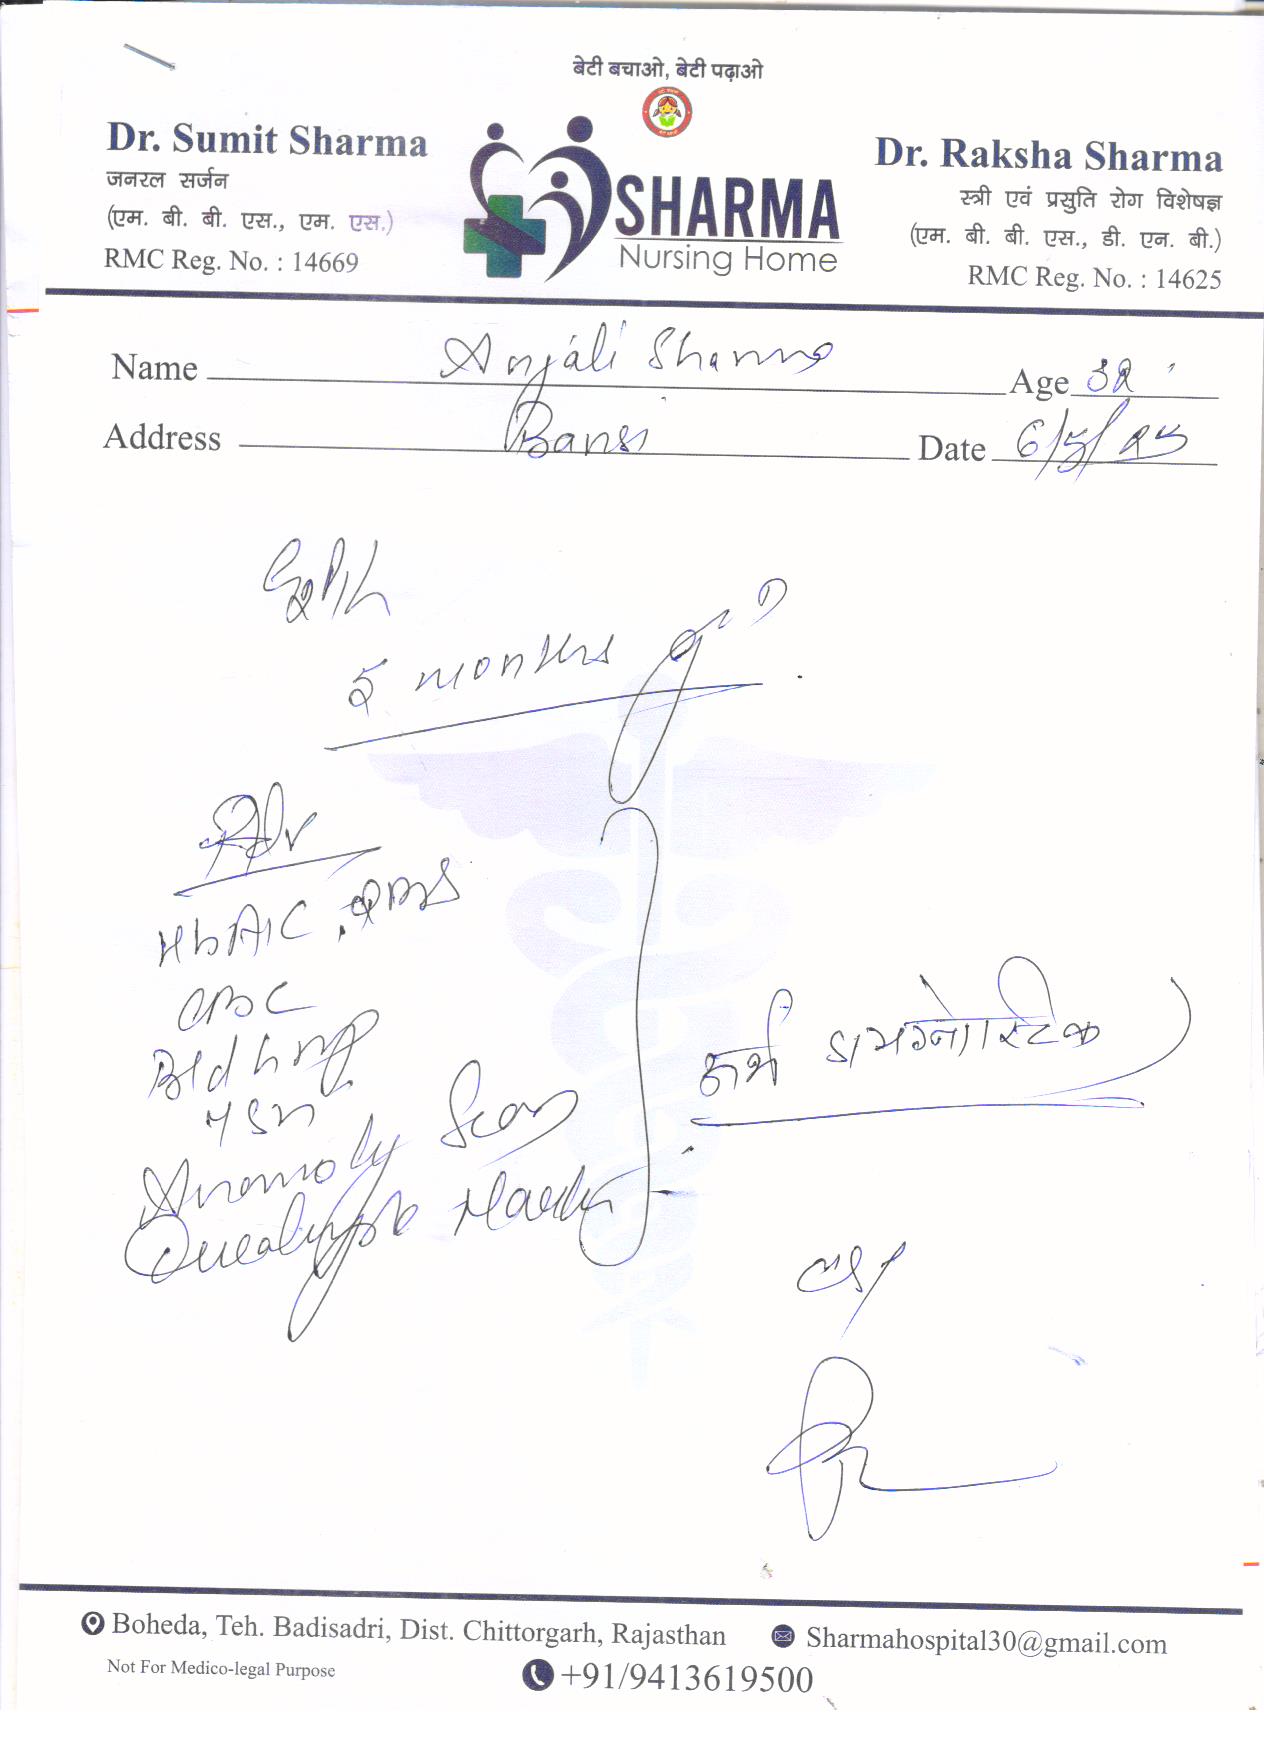 बेटी बचाओ, बेटी पढ़ाओ
Dr. Sumit Sharma
जनरल सर्जन
(एम. बी. बी. एस., एम. एस.)
RMC Reg. No. : 14669
SHARMA
Nursing Home
Dr. Raksha Sharma
स्त्री एवं प्रसुति रोग विशेषज्ञ
(एम. बी. बी. एस., डी. एन. बी.)
RMC Reg. No. : 14625
Name Anjali Sharma Age 32
Address Bansi Date 6/5/25
5 months
Adv
HbA1C, RBS
CBC
Bld
TSH
Anomoly Scan
Marker
डायग्नोस्टिक
Boheda, Teh. Badisadri, Dist. Chittorgarh, Rajasthan
Sharmahospital30@gmail.com
Not For Medico-legal Purpose
+91/9413619500